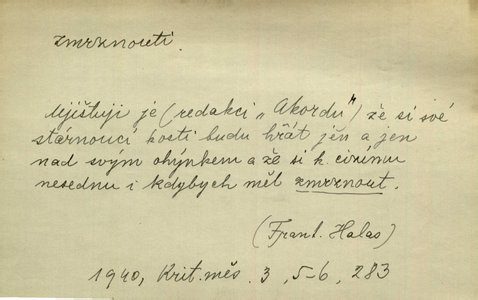 zmrznouti.
Ujišťuji je (redakci „Akordu") že si své
stárnoucí kosti budu hřát jen a jen
nad svým ohýnkem a že si k cizímu
nesednu i kdybych měl zmrznout.
(Frant. Halas)
1940, Krit. měs. 3, 5-6, 283